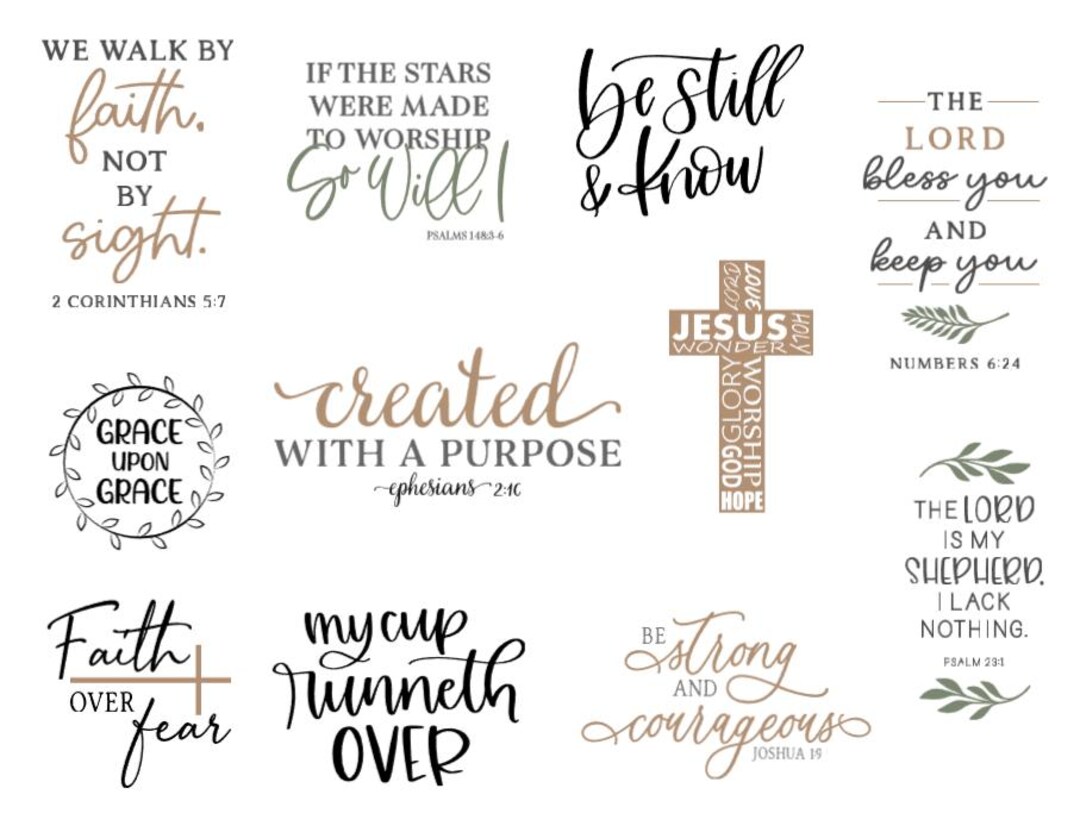 WE WALK BY
faith.
NOT
BY
sight.
2 CORINTHIANS 5:7
IF THE STARS
WERE MADE
TO WORSHIP
So Will I
PSALMS 148:3-6
be still
& know
THE
LORD
bless you
AND
keep you
NUMBERS 6:24
GRACE
UPON
GRACE
created
WITH A PURPOSE
~ephesians~ 2:10
LORD
LOVE
JESUS
HOLY
WONDER
GLORY
WORSHIP
GOD
HOPE
THE LORD
IS MY
SHEPHERD.
I LACK
NOTHING.
PSALM 23:1
Faith
OVER
fear
my cup
runneth
OVER
BE strong
AND
courageous
JOSHUA 1:9